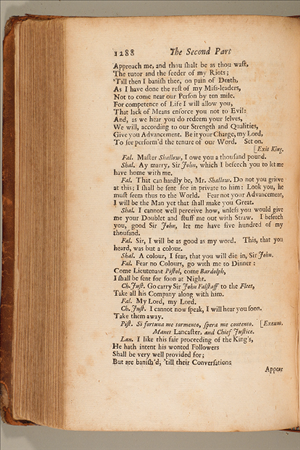 1288 The Second Part
Approach me, and thou shalt be as thou wast,
The tutor and the feeder of my Riots;
'Till then I banish thee, on pain of Death,
As I have done the rest of my Mis-leaders,
Not to come near our Person by ten mile.
For competence of Life I will allow you,
That lack of Means enforce you not to Evil:
And, as we hear you do redeem your selves,
We will, according to our Strength and Qualities,
Give you Advancement. Be it your Charge, my Lord,
To see perform'd the tenure of our Word. Set on.
[Exit King.
Fal. Master Shallow, I owe you a thousand pound.
Shal. Ay marry, Sir John, which I beseech you to let me
have home with me.
Fal. That can hardly be, Mr. Shallow. Do not you grieve
at this; I shall be sent for in private to him: Look you, he
must seem thus to the World. Fear not your Advancement,
I will be the Man yet that shall make you Great.
Shal. I cannot well perceive how, unless you would give
me your Doublet and stuff me out with Straw. I beseech
you, good Sir John, let me have five hundred of my
thousand.
Fal. Sir, I will be as good as my word. This, that you
heard, was but a colour.
Shal. A colour, I fear, that you will die in, Sir John.
Fal. Fear no Colours, go with me to Dinner:
Come Lieutenant Pistol, come Bardolph,
I shall be sent for soon at Night.
Ch. Just. Go carry Sir John Falstaff to the Fleet,
Take all his Company along with him.
Fal. My Lord, my Lord.
Ch. Just. I cannot now speak, I will hear you soon.
Take them away.
Pist. Si fortuna me tormento, spera me contento. [Exeunt.
Manet Lancaster, and Chief Justice.
Lan. I like this fair proceeding of the King's,
He hath intent his wonted Followers
Shall be very well provided for;
But are banish'd, 'till their Conversations
Appear